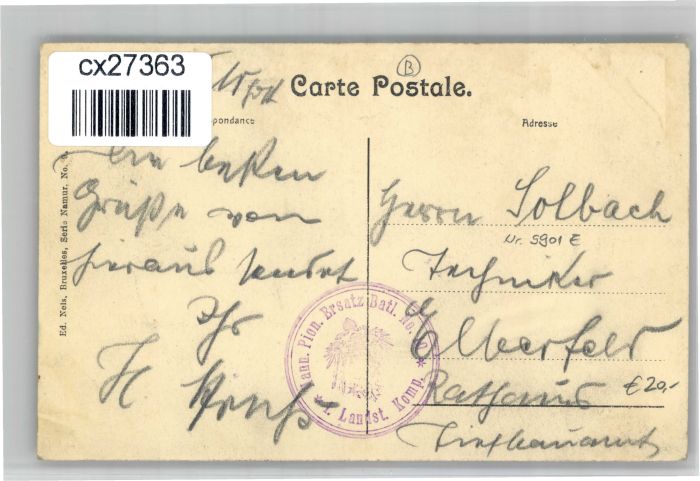 cx27363
B
Carte Postale.
pondance
Adresse
Die besten
Grüße von
hieraus sendet
Ihr
H
Herrn Solbach
Nr. 5901 E
Techniker
Elberfeld
Rathaus
€20,-
Tiefbauamt
Ed. Nels, Bruxelles, Serie Namur. No.
Hann. Pion. Ersatz Batl. No.
1. Landst. Komp.